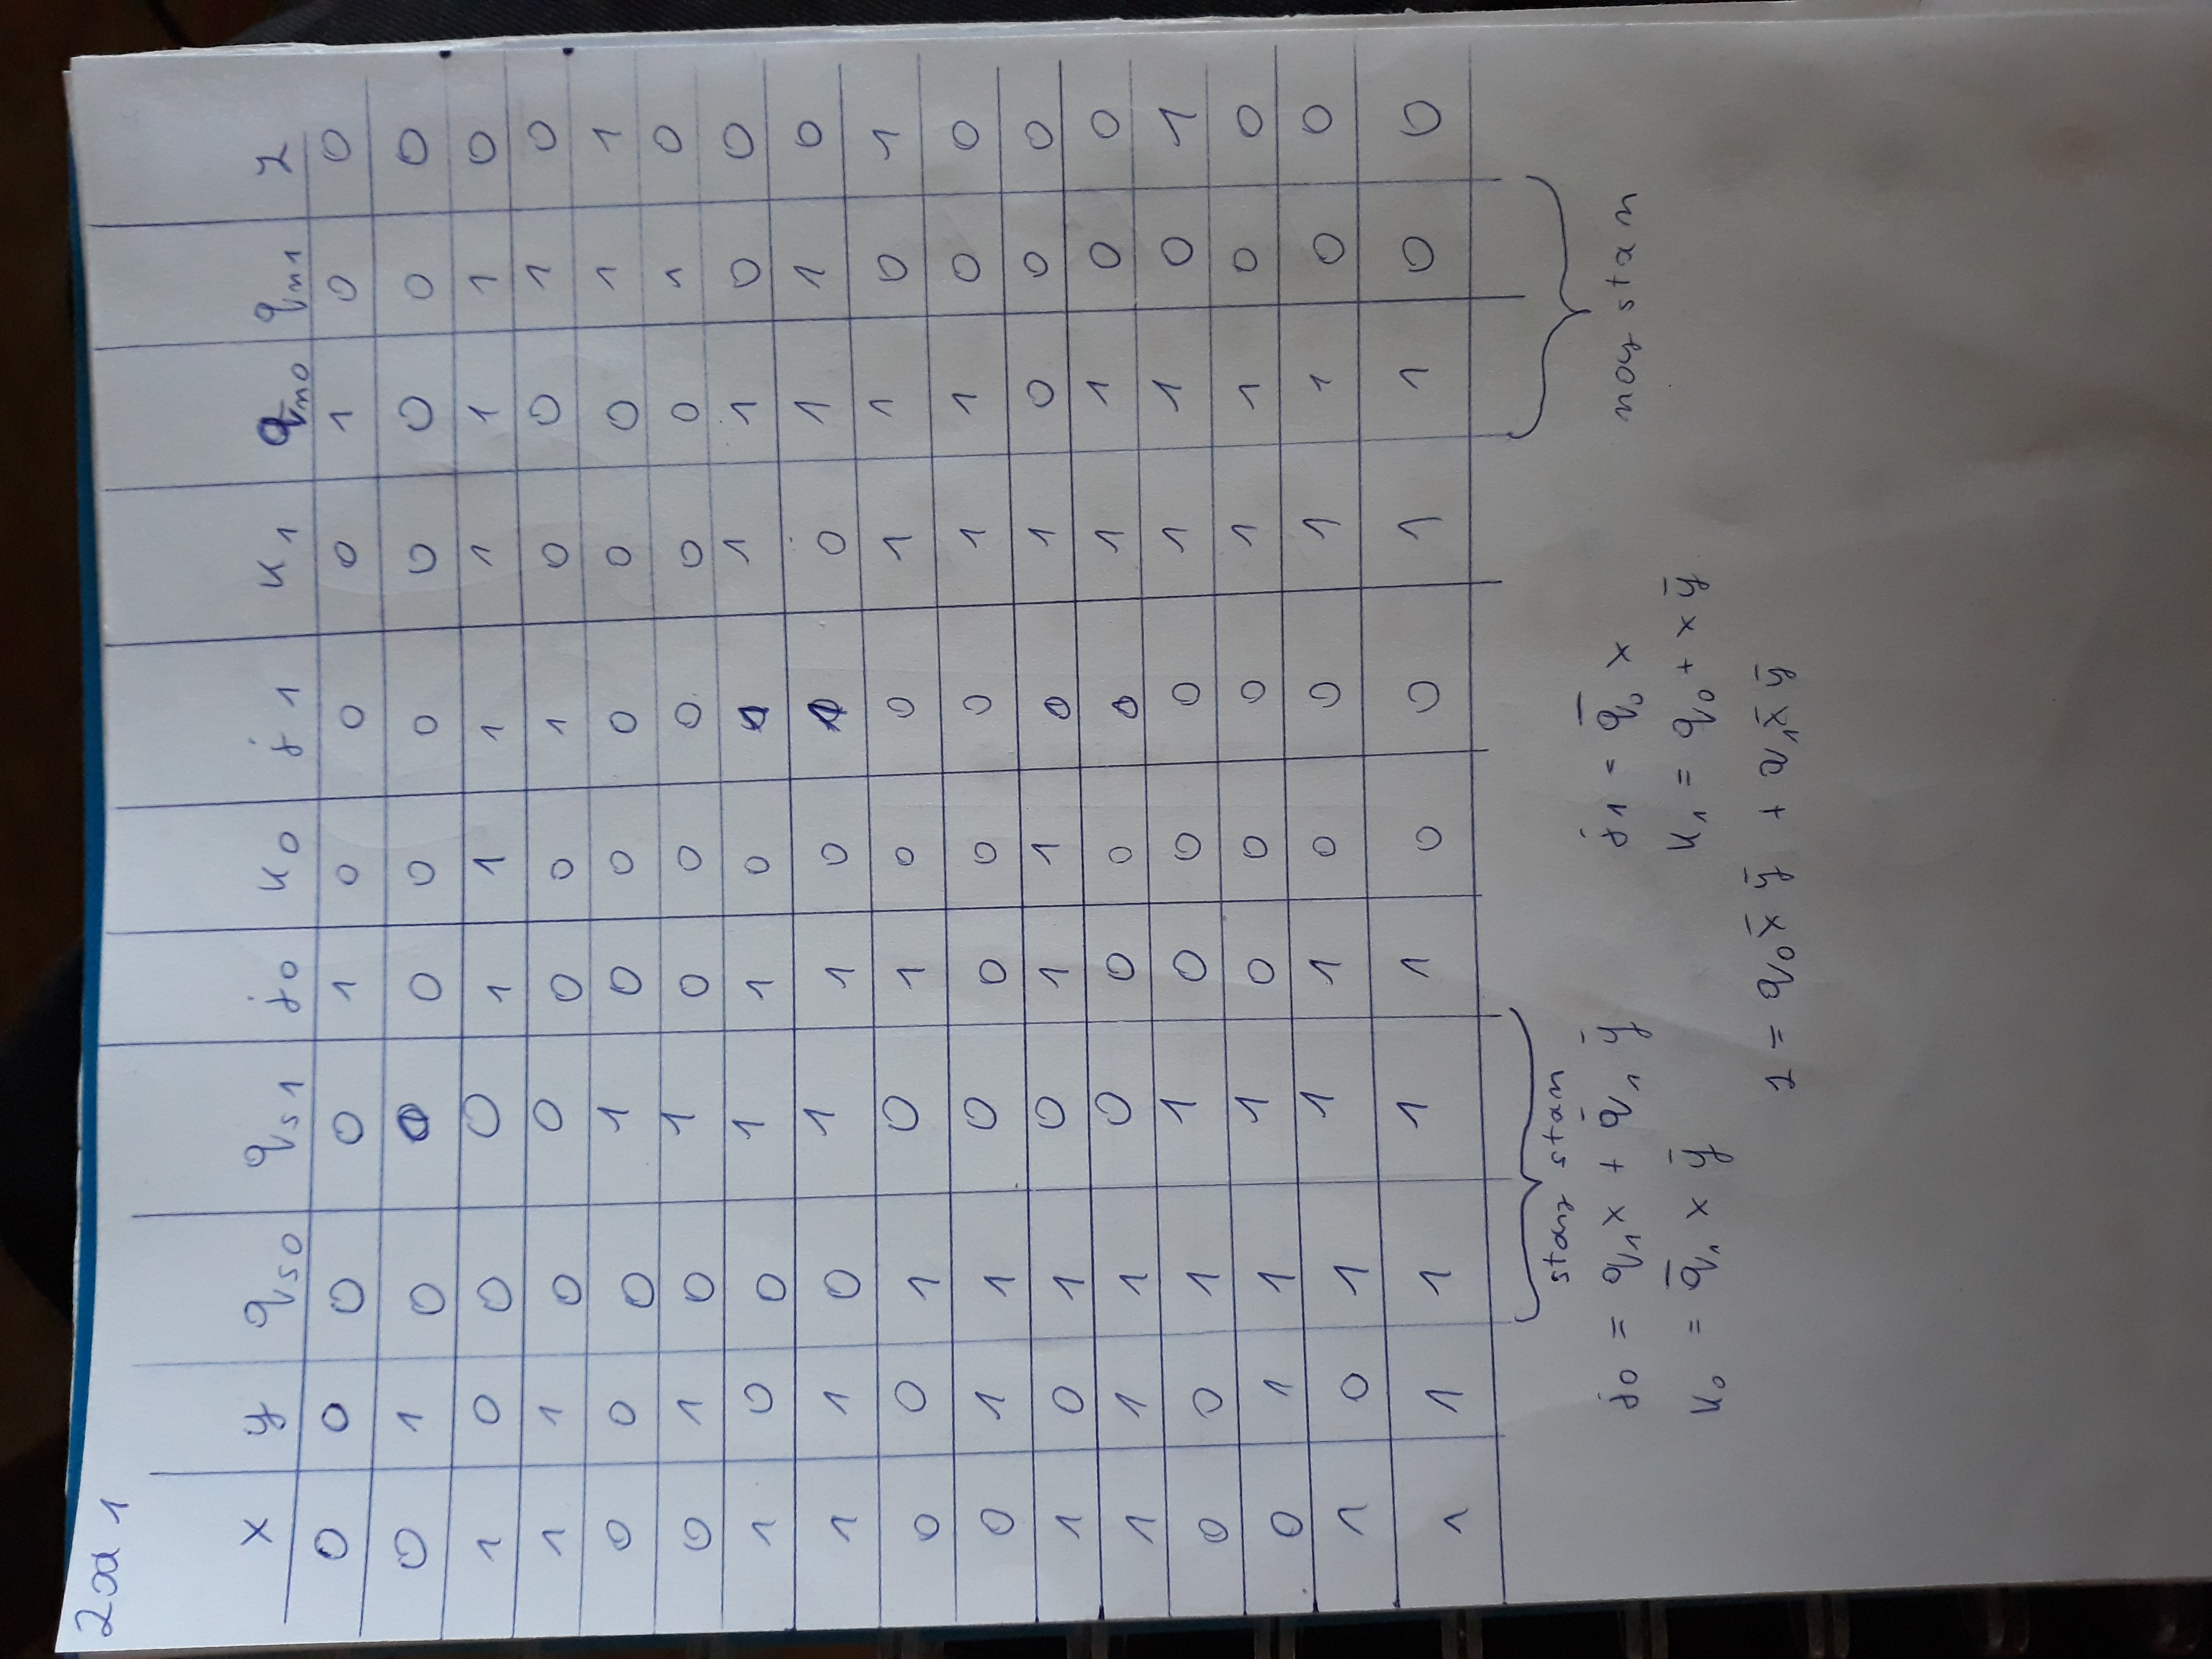 Zad 1
x y qs0 qs1 j0 k0 j1 k1 qn0 qn1 z
0 0 0 0 1 0 0 0 1 0 0
0 1 0 0 0 0 0 0 0 0 0
1 0 0 0 1 1 1 1 1 1 0
1 1 0 0 0 0 1 0 0 1 0
0 0 0 1 0 0 0 0 0 1 1
0 1 0 1 0 0 0 0 0 1 0
1 0 0 1 1 0 1 1 1 0 0
1 1 0 1 1 0 1 0 1 1 0
0 0 1 0 1 0 0 1 1 0 1
0 1 1 0 0 0 0 1 1 0 0
1 0 1 0 1 1 0 1 0 0 0
1 1 1 0 0 0 0 1 1 0 0
0 0 1 1 0 0 0 1 1 0 1
0 1 1 1 0 0 0 1 1 0 0
1 0 1 1 1 0 0 1 1 0 0
1 1 1 1 1 0 0 1 1 0 0
stary stan
nowy stan
j0 = q1x + q̄1 ȳ j1 = q̄0 x
k0 = q̄1 x ȳ k1 = q0 + x ȳ
z = q0 x̄ ȳ + q1 x̄ ȳ